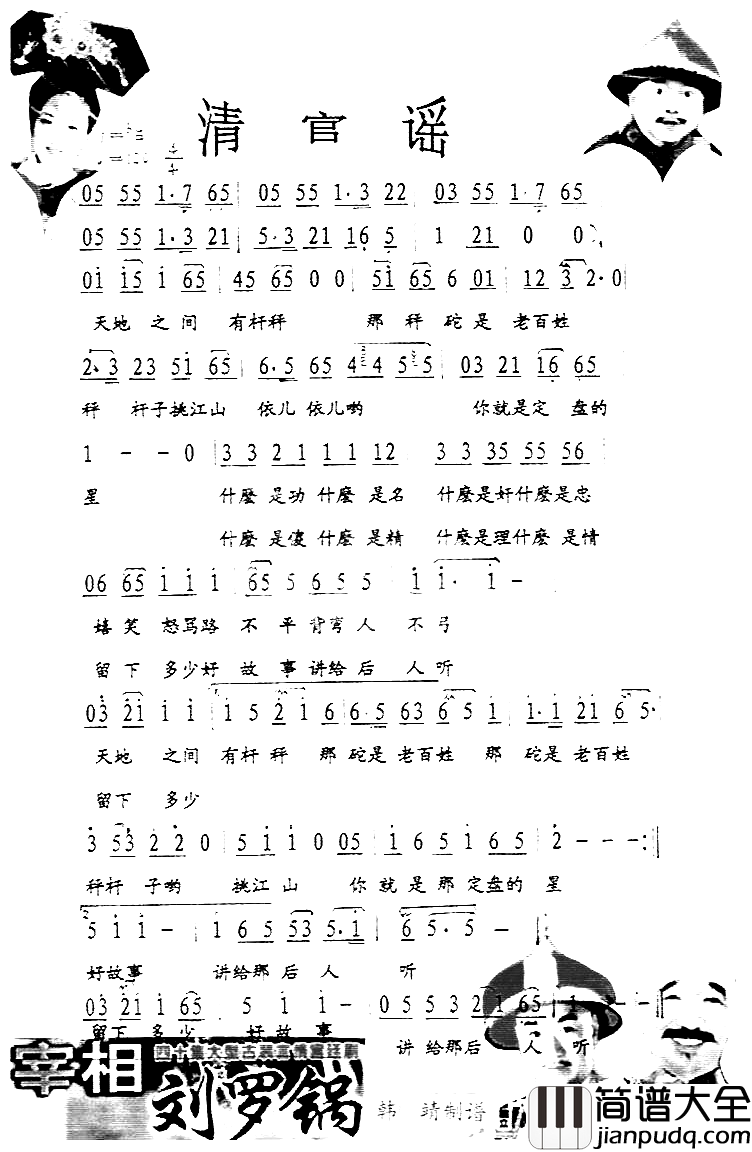 清官谣
05 55 1·7 65 05 55 1·3 22 03 55 1·7 65
05 55 1·3 21 5·3 21 16 5 1 21 0 0
01 15 1 65 45 65 0 0 51 65 6 01 12 3 2·0
天地 之间 有杆秤 那 秤 砣 是 老百姓
2·3 23 51 65 6·5 65 4 4 5 5 03 21 16 65
秤 杆子挑江山 依儿 依儿哟 你就是定 盘的
1 - - 0 3 3 2 1 1 1 12 3 3 35 55 56
星 什麽 是功 什麽 是名 什麽是奸什麽是忠
什麽 是傻 什麽 是精 什麽是理什麽 是情
06 65 1 1 1 65 5 6 5 5 1 1· 1 -
嬉 笑 怒骂路 不 平 背弯 人 不 弓
留 下 多少好 故 事 讲给 后 人 听
03 21 1 1 1 5 2 1 6 6·5 63 6 5 1 1·1 21 6 5·
天地 之间 有杆 秤 那 砣是 老百姓 那 砣是 老百姓
留下 多少
3 53 2 2 0 5 1 1 0 05 1 6 5 1 6 5 2 - - -
秤杆 子哟 挑江 山 你 就 是 那 定盘的 星
2 5 1 1 - 1 6 5 53 5·1 6 5·5 -
好故事 讲给那后 人 听
03 21 1 65 5 1 1 - 0 5 5 3 2 1 65 1 -
留下 多少 好 故 事 讲 给那后 人 听
宰相
四十集大型古装喜情宫廷剧
刘罗锅
韩 靖制谱
简谱大全
jianpudq.com